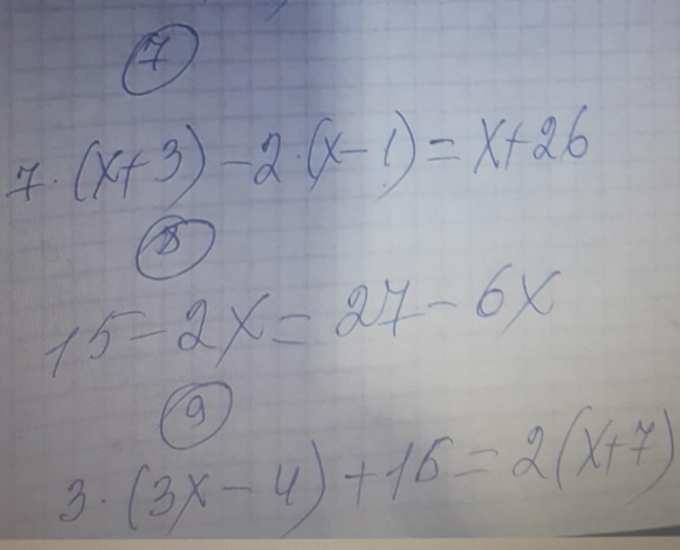 7
7·(x+3)-2·(x-1)=x+26
8
15-2x=27-6x
9
3·(3x-4)+16=2(x+7)